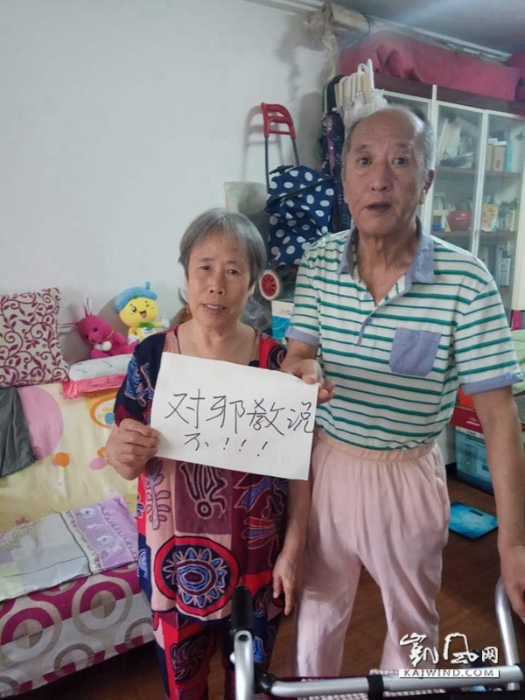 对邪教说
不！！！
凯风网
KAIWIND.COM